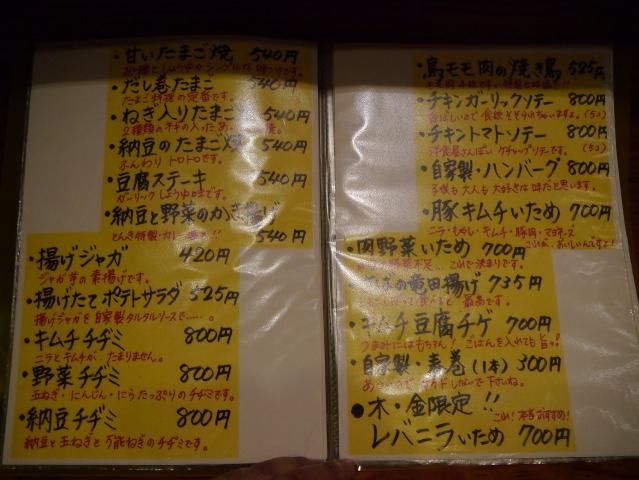 ・甘いたまご焼 540円
・だし巻たまご 540円
たまご料理の定番です。
・ねぎ入りたまご 540円
・納豆のたまご焼 540円
ふんわり トロトロです。
・豆腐ステーキ 540円
ガーリックしょうゆ味です。
・納豆と野菜のかき揚げ
540円
・揚げジャガ 420円
ジャガ芋の素揚げです。
・揚げたて ポテトサラダ 525円
揚げジャガを自家製タルタルソースで……。
・キムチ チヂミ 800円
ニラとキムチが、たまりません。
・野菜チヂミ 800円
玉ねぎ・にんじん・にらたっぷりのチヂミです。
・納豆チヂミ 800円
納豆と玉ねぎと万能ねぎのチヂミです。
・鳥モモ肉の焼き鳥 525円
・チキンガーリックソテー 800円
香ばしいので食欲そそられちゃいますよ。
・チキントマトソテー 800円
洋食屋さんぽい ケチャップソテーです。
・自家製・ハンバーグ 800円
子供も大人も大好きな味だと思います。
・豚キムチいため 700円
ニラ・もやし・キムチ・豚肉・マヨネーズ
これが、おいしいんですよ!
・肉野菜いため 700円
野菜不足… これで決まりです。
の竜田揚げ 735円
最高です。
・キムチ豆腐チゲ 700円
つまみにはもちろん! ごはんを入れても旨っ!
・自家製・春巻(1本) 300円
●木・金限定!!
これ!本当おすすめ!
レバニラいため 700円